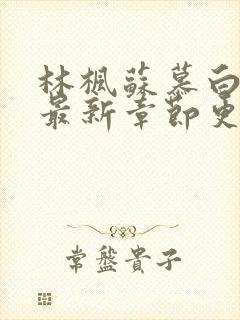 林楓蘇慕白
最新章節更
常盤貴子